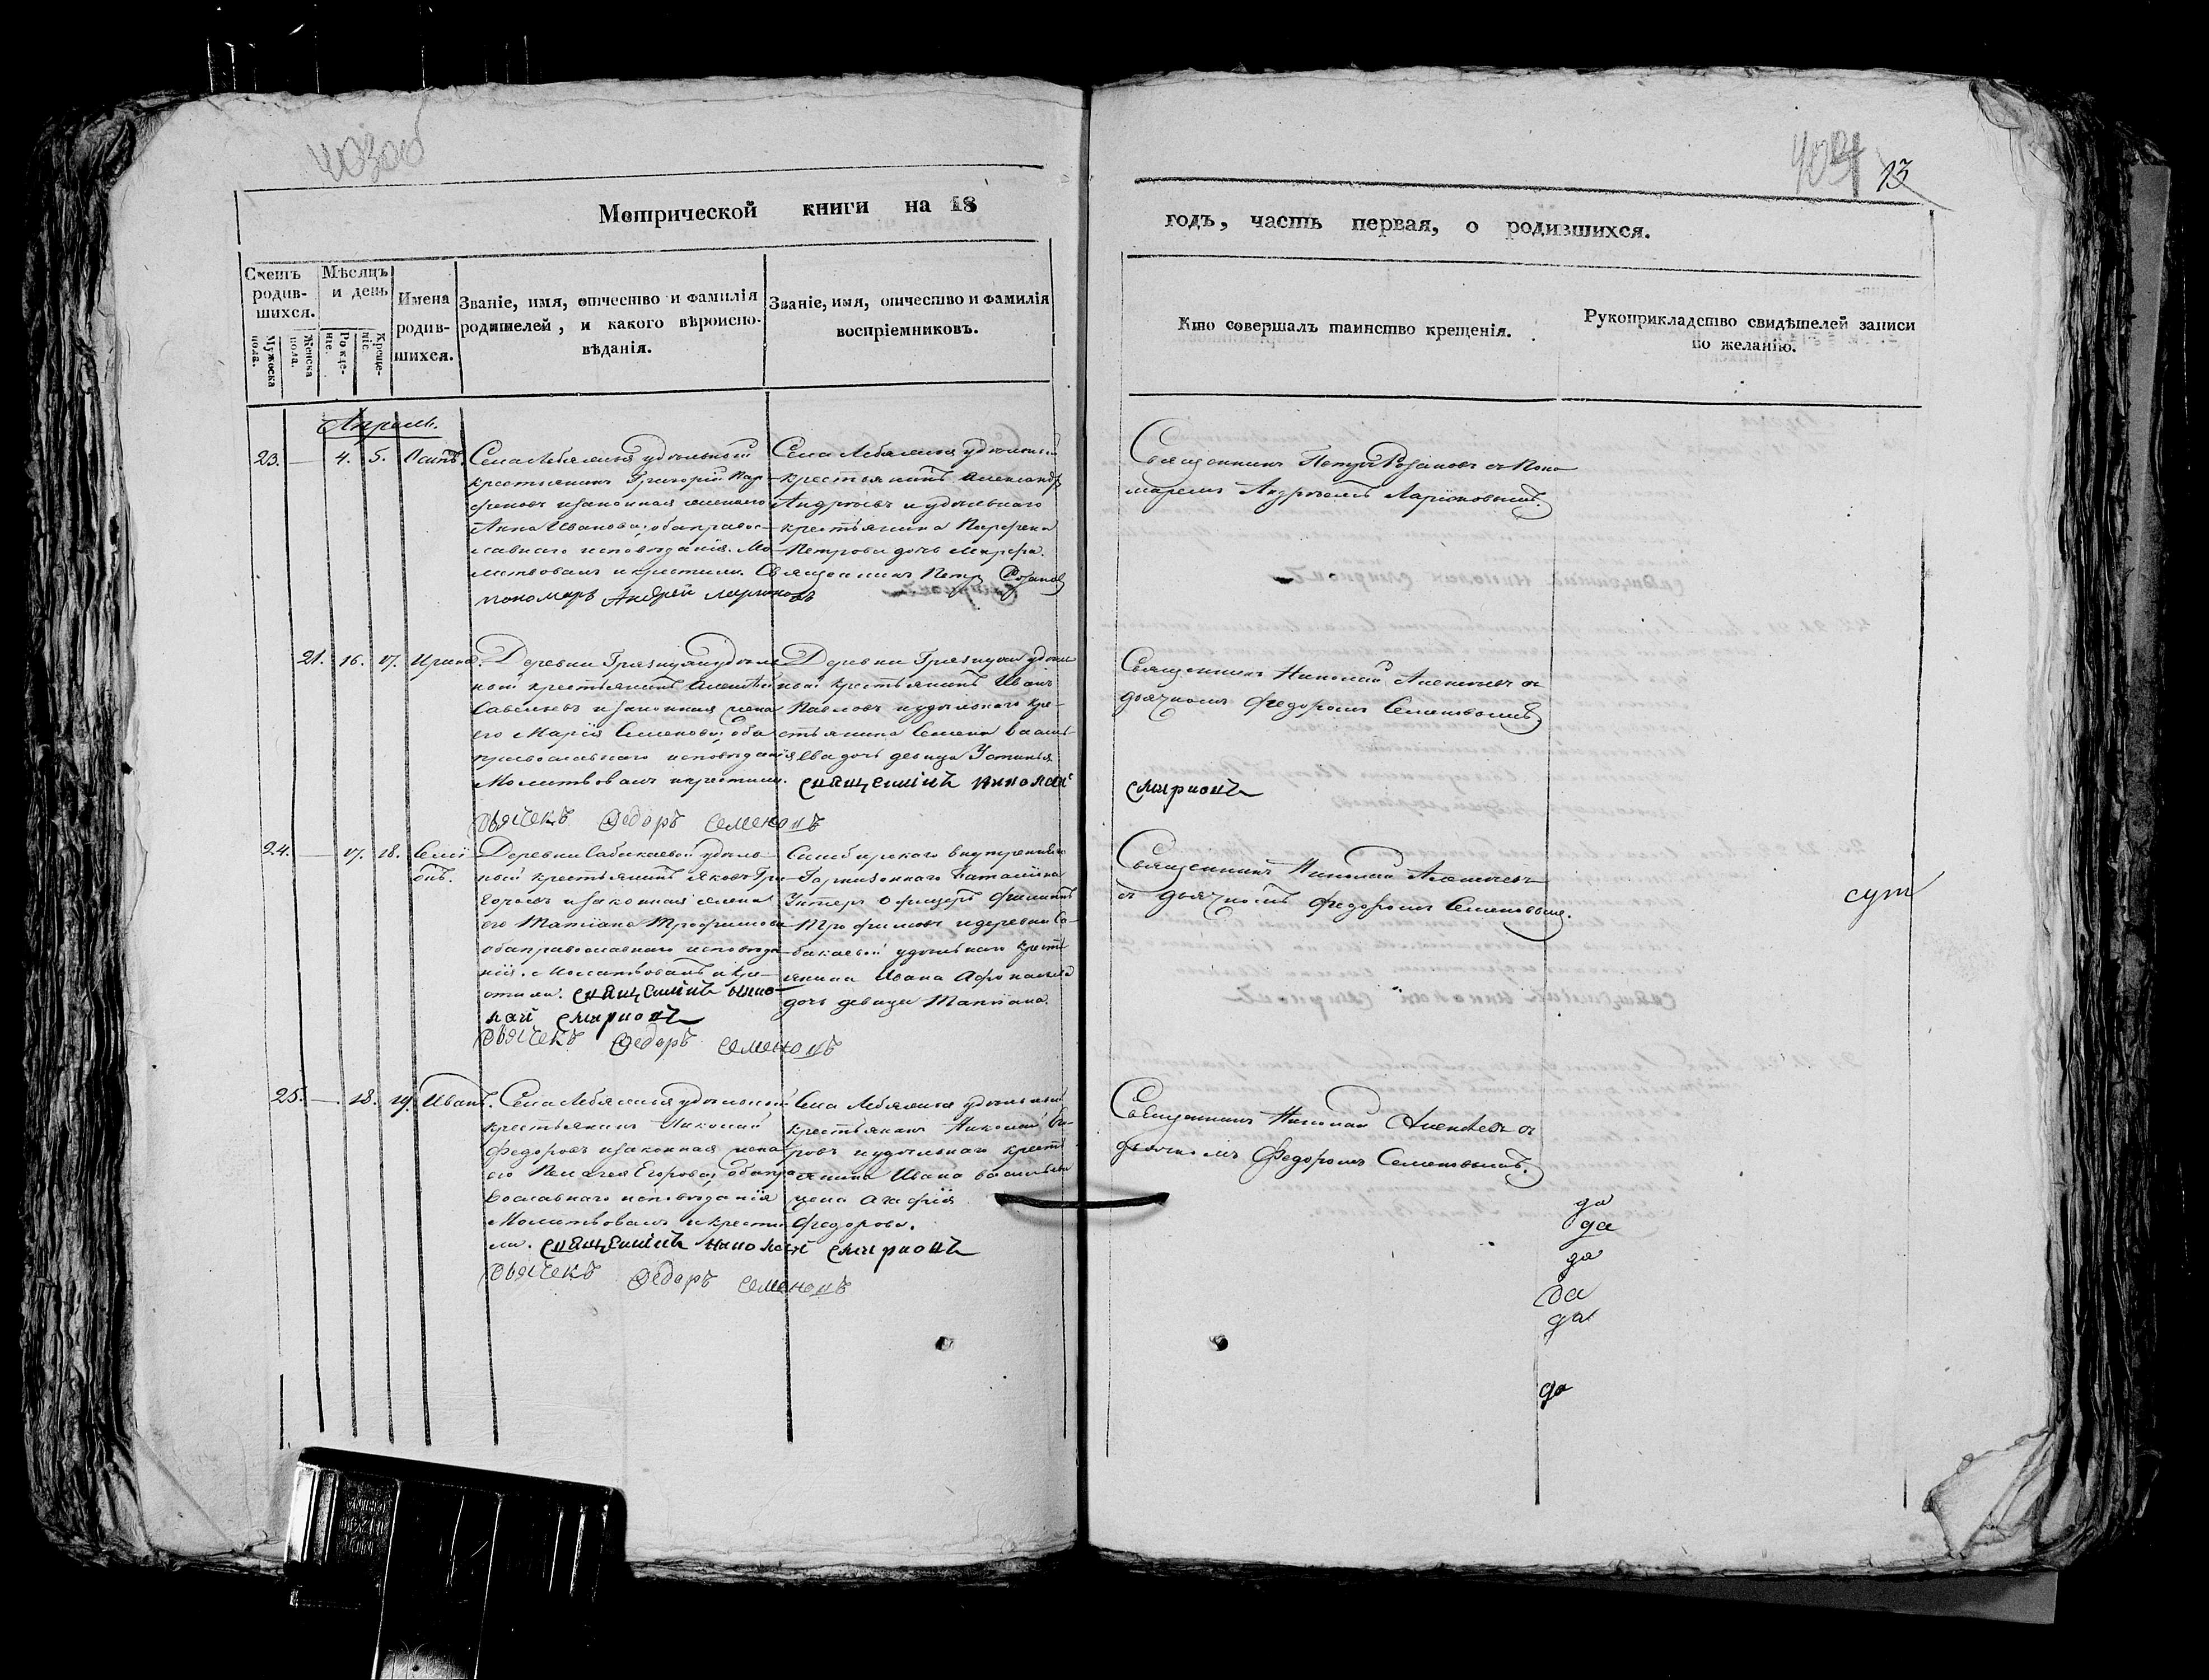 403об
Метрической книги на 18
Счетъ родив-
шихся.
Мужеска пола.
Женска пола.
Мѣсяцъ и день
Рожде-
ніе.
Креще-
ніе.
Имена
родив-
шихся.
Званіе, имя, отчество и фамилія
родителей, и какого вѣроиспо-
вѣданія.
Званіе, имя, отчество и фамилія
воспріемниковъ.
Апрель.
23. — 4. 5. Осипъ.
Села Лебяжья удѣльный
крестьянинъ Григорий Пар-
феновъ и законная жена его
Анна Иванова, оба правос-
лавнаго исповѣданія. Мо-
литвовалъ и крестили. Священникъ Петр Розанов
пономаръ Андрей Ларионовъ
Села Лебяжья удѣльный
крестьянинъ Александр
Андреевъ и удѣльнаго
крестьянина Парфена
Петрова дочь Марфа.
21. 16. 17. Ирина.
Деревни Грязнухи удѣль-
ной крестьянинъ Алексѣй
Савельевъ и законная жена
его Марія Семенова; оба
православнаго исповѣданія
Молитвовалъ и крестили.
Деревни Грязнухи удѣль-
ной крестьянинъ Иванъ
Павловъ и удѣльнаго кре-
стьянина Семена Василь-
ева дочь девица Устинья
священникъ николай
дьячекъ Федоръ семеновъ
24. — 17. 18. Семі-
онъ.
Деревни Сабакаевой удѣль-
ный крестьянинъ Яковъ Гри-
горьевъ и законная жена
его Матіана Трофимова
оба православнаго исповѣда-
нія. Молитвовалъ и кре-
стили. священникъ нико-
лай смирновъ
дьячекъ Федоръ семеновъ
Симбирскаго внутренняго
Гарнизоннаго Баталіона
Унтеръ Офицеръ Филиппъ
Трофимовъ и деревни Са-
бакаевой удѣльнаго крестъ
янина Ивана Афонасьева
дочь девица Матіана.
25. — 18. 19. Иванъ.
Села Лебяжья удѣльной
крестьянинъ Николай
Федоровъ и законная жена
его Пелагея Егорова, оба пра-
вославнаго исповѣданія
Молитвовалъ и крести-
ли. священникъ николай смирновъ
дьячекъ Федоръ семеновъ
Села Лебяжья удѣльный
крестьянинъ Николай
и удѣльнаго крестъ
янина Ивана Васильева
жена Агафія
Федорова.
13
годъ, часть первая, о родившихся.
Кто совершалъ таинство крещенія.
Рукоприкладство свидѣтелей записи
по желанію.
Священникъ Петръ Розановъ съ Поно-
маремъ Андреемъ Ларіоновымъ.
Священникъ Николай Алексѣевъ съ
дьячкомъ Федоромъ Семеновымъ.
смирновъ
Священникъ Николай Алексѣевъ
съ дьячкомъ Федоромъ Семеновымъ.
сут
Священникъ Николай Алексѣевъ съ
дьячкомъ Федоромъ Семеновымъ.
да
да
да
да
да
да